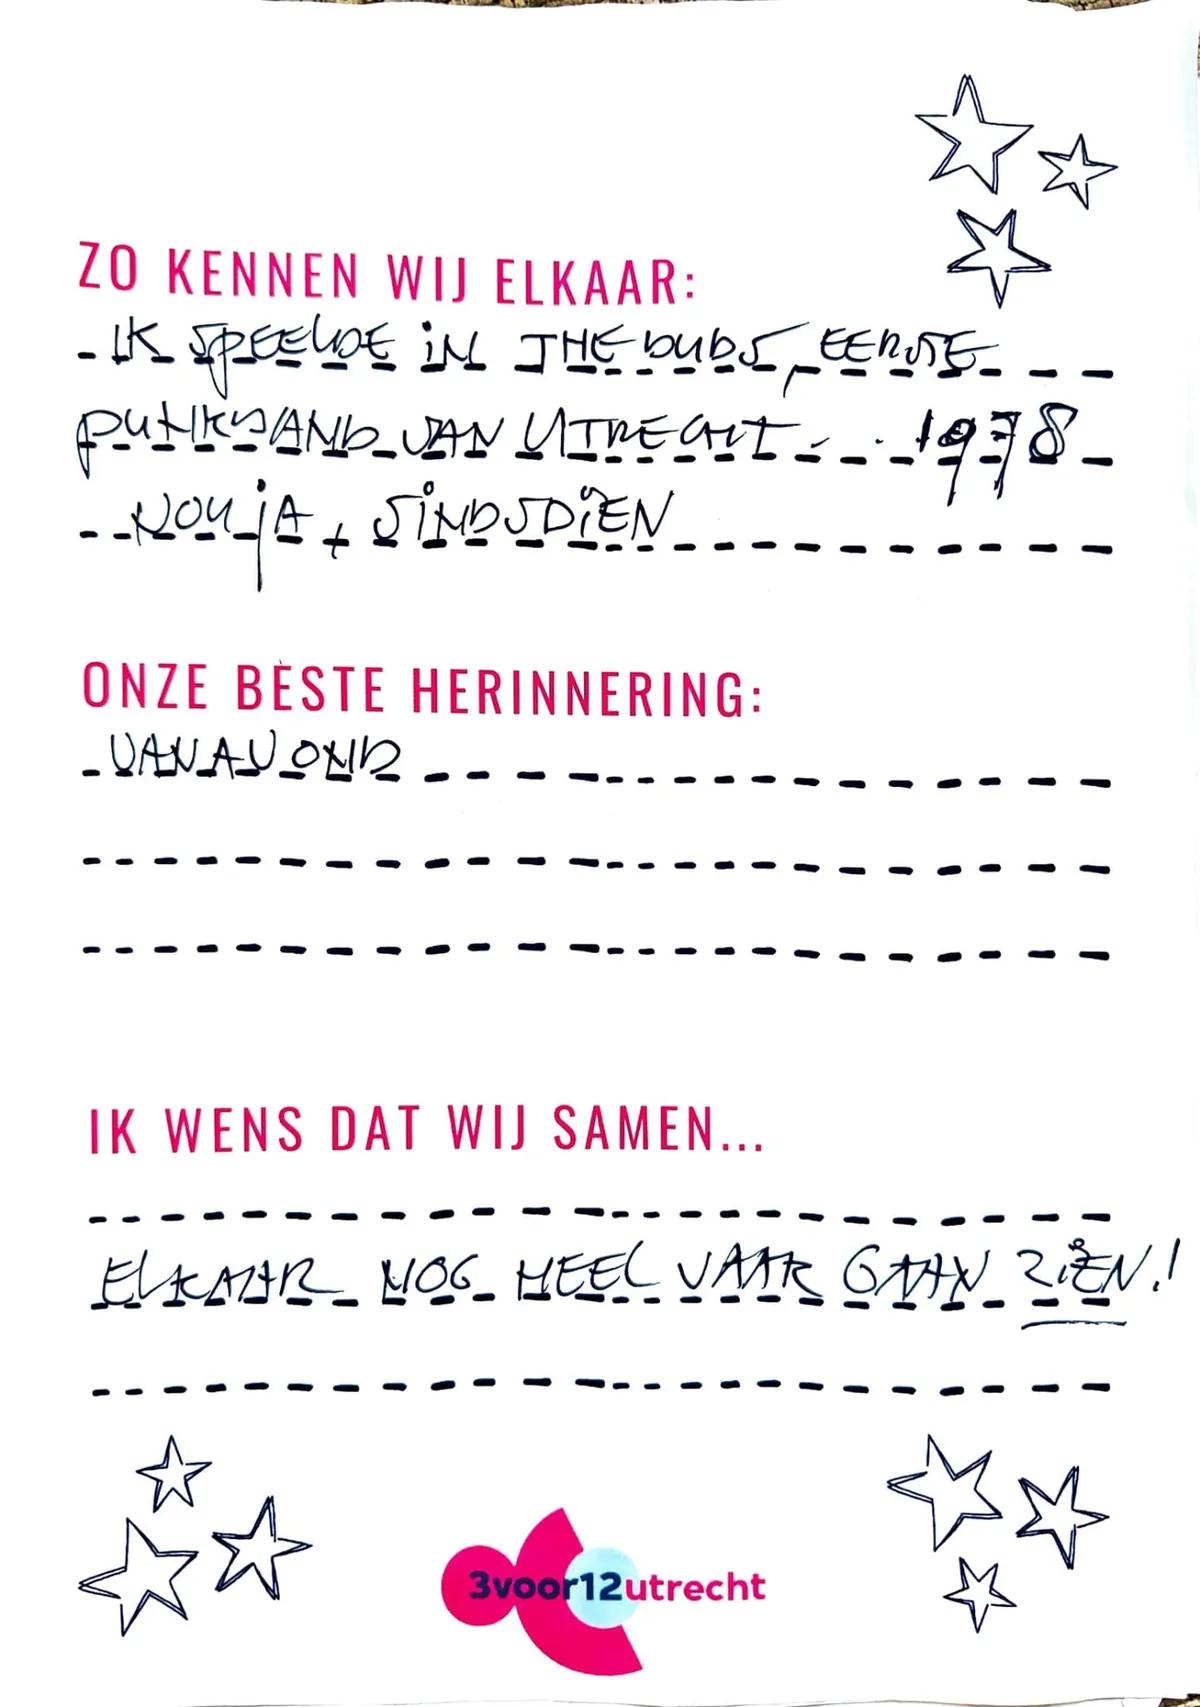 ZO KENNEN WIJ ELKAAR:
IK SPEELDE IN THE DUDS, EERSTE
PUNKBAND VAN UTRECHT - . 1978
NOU JA, SINDSDIEN
ONZE BESTE HERINNERING:
VANAVOND
IK WENS DAT WIJ SAMEN...
ELKAAR NOG HEEL VAAK GAAN ZIEN!
3voor12utrecht